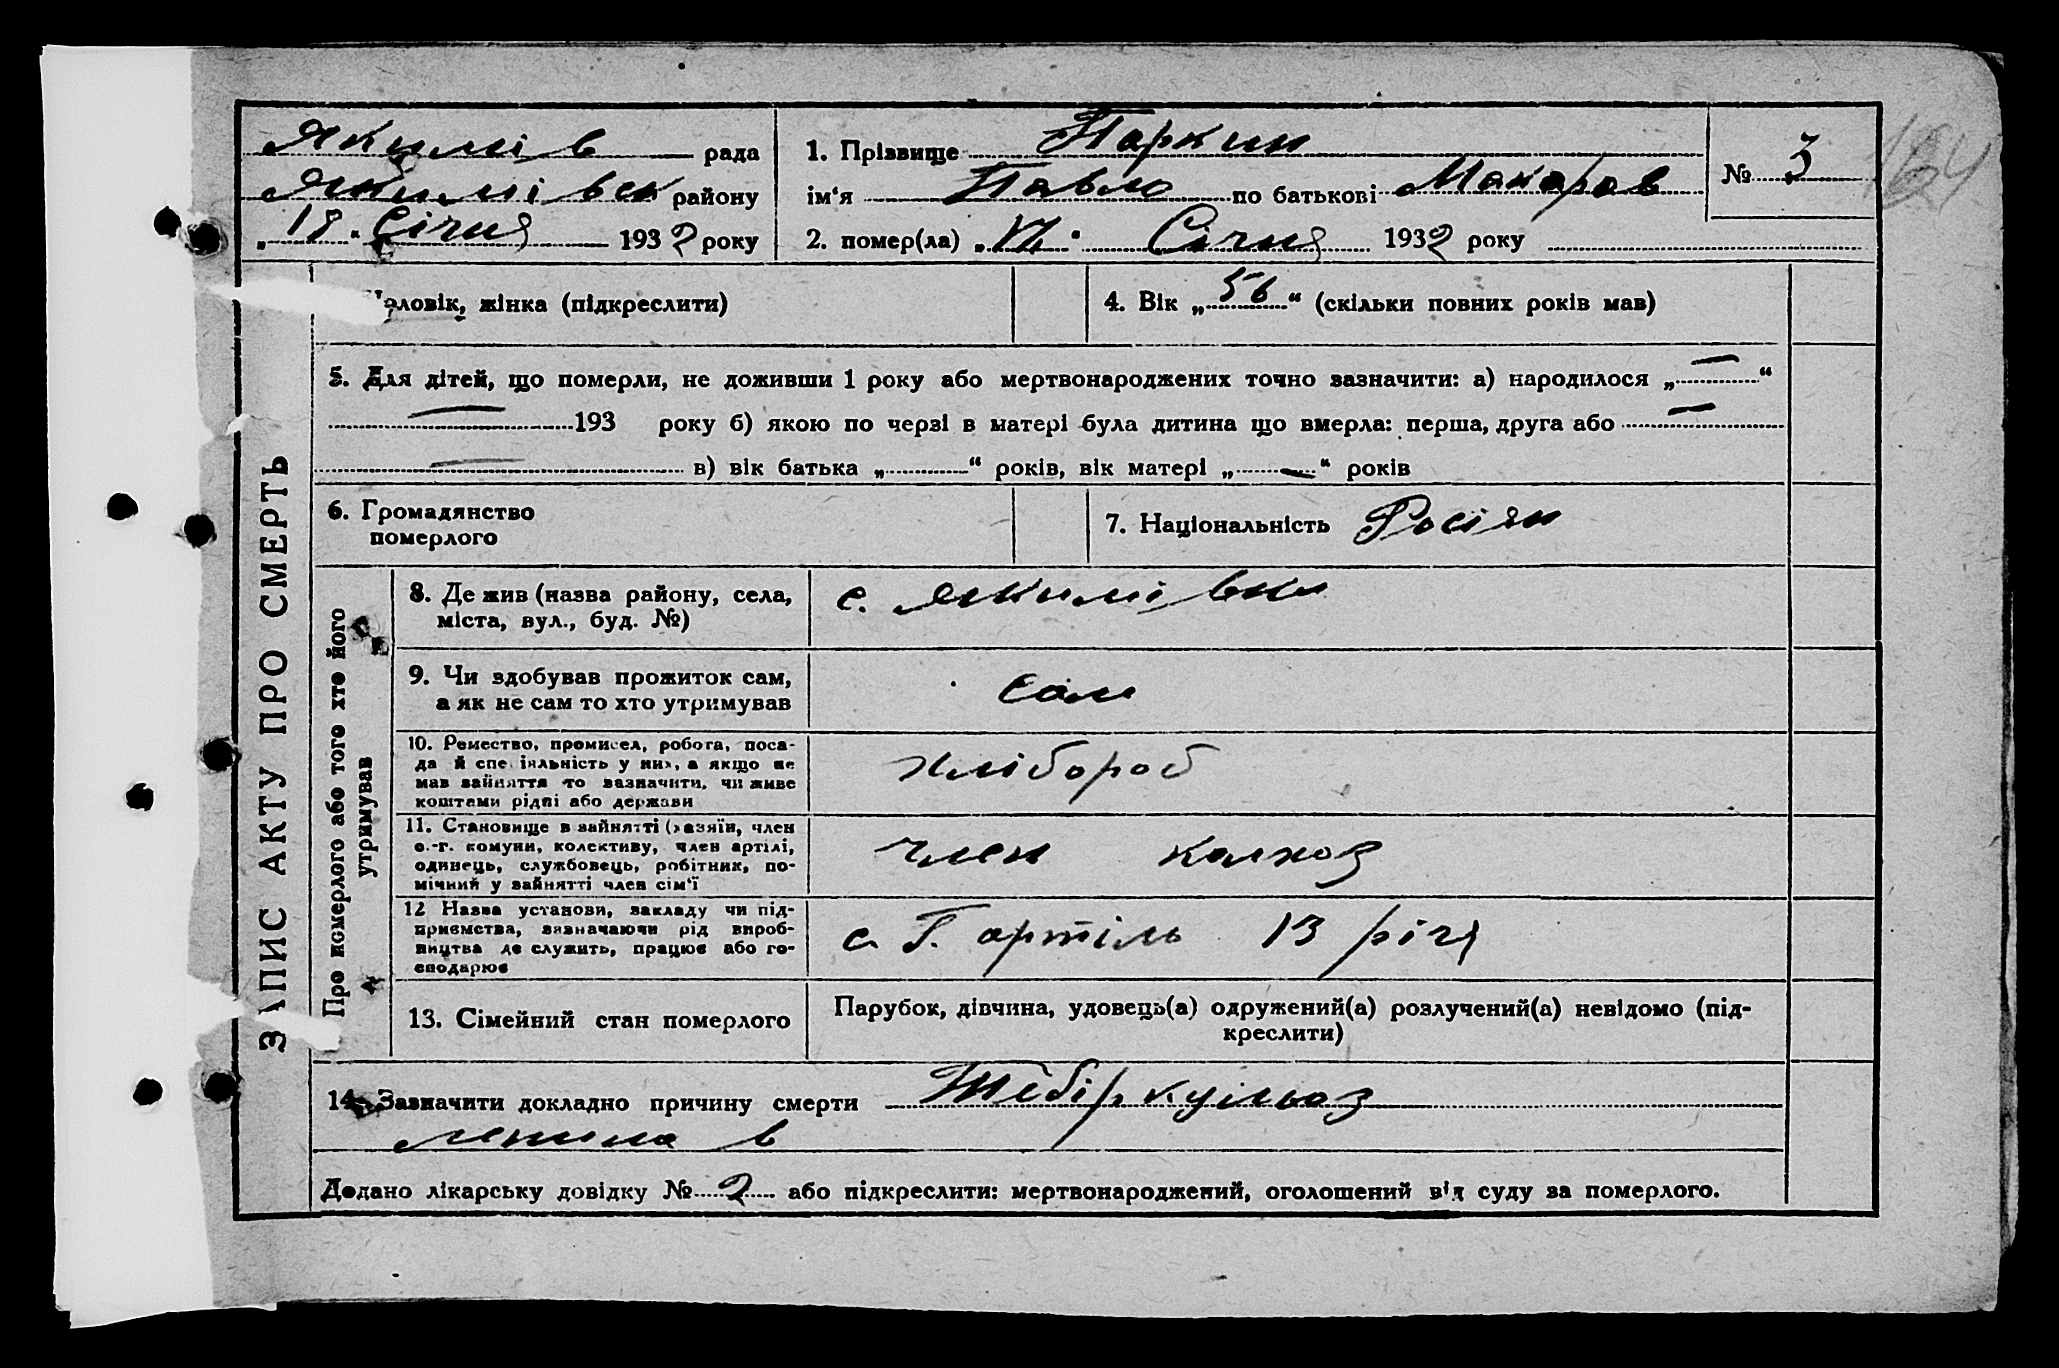 Якимів рада
Якимівськ району
„ 18 “ Січня 1932 року
1. Прізвище Паркин
ім'я Павло по батькові Макаров
№ 3
164
2. помер(ла) „ 17 “ Січня 1932 року
ЗАПИС АКТУ ПРО СМЕРТЬ
Чоловік, жінка (підкреслити)
4. Вік „ 56 “ (скільки повних років мав)
5. Для дітей, що померли, не доживши 1 року або мертвонароджених точно зазначити: а) народилося „ — “
— 193 року б) якою по черзі в матері була дитина що вмерла: перша, друга або —
— в) вік батька „ “ років, вік матері „ — “ років
6. Громадянство
померлого
7. Національність Росіян
Про померлого або того хто його
утримував
8. Де жив (назва району, села,
міста, вул., буд. №)
с. Якимівка
9. Чи здобував прожиток сам,
а як не сам то хто утримував
сам
10. Ремество, промисел, робота, поса-
да й спеціяльність у них, а якщо не
мав зайняття то зазначити, чи живе
коштами рідні або держави
хлібороб
11. Становище в зайнятті (хазяїн, член
с.-г. комуни, колективу, член артілі,
одинець, службовець, робітник, по-
мічний у зайнятті член сім'ї
член колхоз
12 Назва установи, закладу чи під-
приємства, зазначаючи рід вироб-
ництва де служить, працює або го-
сподарює
с. Г. артіль 13 річя
13. Сімейний стан померлого
Парубок, дівчина, удовець(а) одружений(а) розлучений(а) невідомо (під-
креслити)
14. Зазначити докладно причину смерти Тебіркульоз
Додано лікарську довідку № 2 або підкреслити: мертвонароджений, оголошений від суду за померлого.